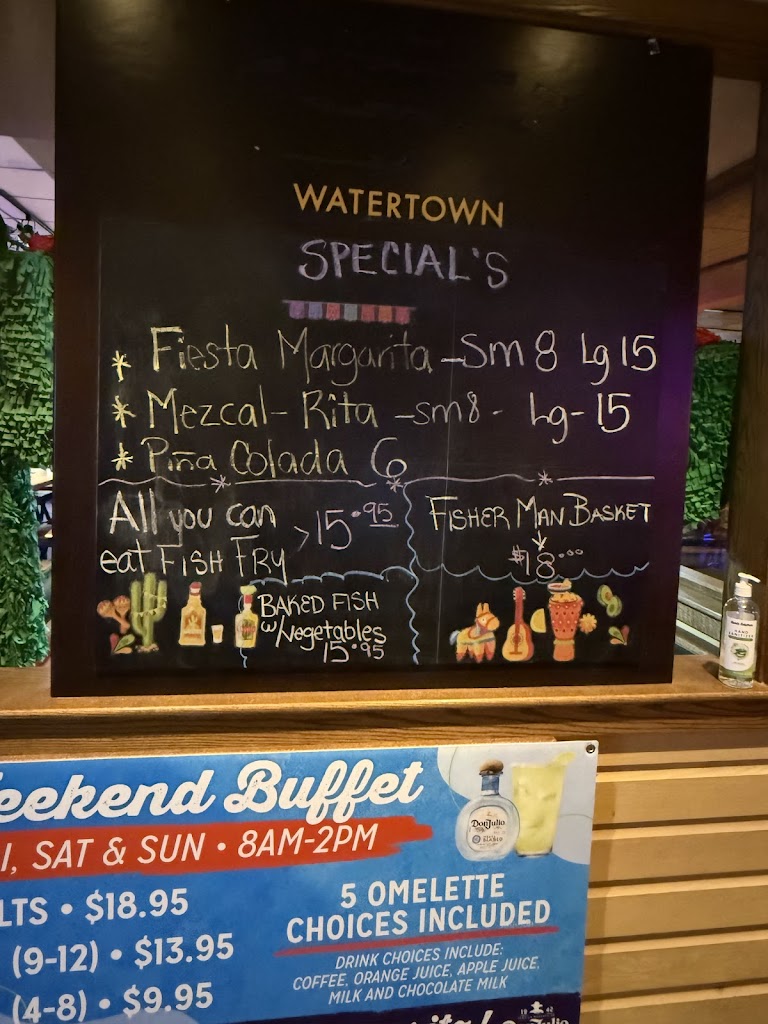 WATERTOWN
SPECIAL'S
* Fiesta Margarita - Sm 8 Lg 15
* Mezcal - Rita - sm 8 - Lg - 15
* Piña Colada 6
All you can
eat FISH FRY > 15.95
BAKED FISH
w/ Vegetables
15.95
FISHER MAN BASKET
$18.00
eekend Buffet
I, SAT & SUN • 8AM-2PM
LTS • $18.95
(9-12) • $13.95
(4-8) • $9.95
Don Julio
5 OMELETTE
CHOICES INCLUDED
DRINK CHOICES INCLUDE:
COFFEE, ORANGE JUICE, APPLE JUICE,
MILK AND CHOCOLATE MILK